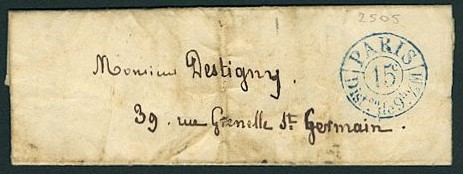 2505
PARIS
15c
Monsieur Destigny.
39. rue Grenelle St. Germain.